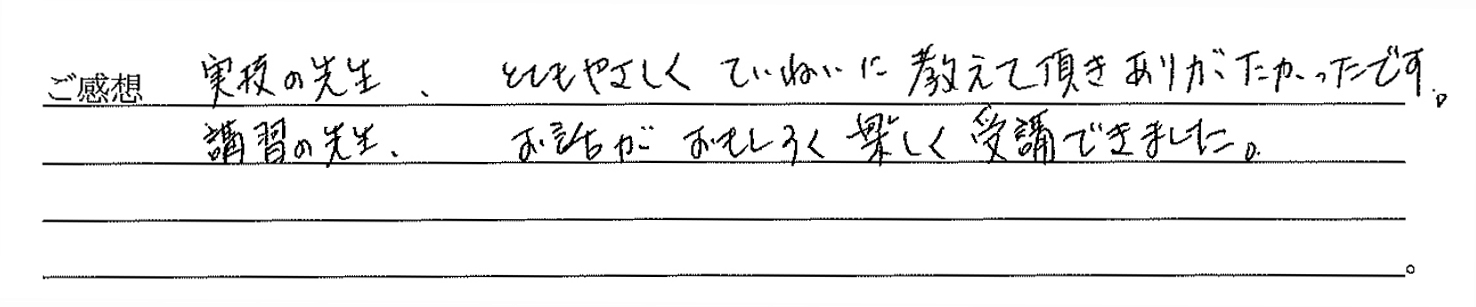 ご感想 実技の先生、 とてもやさしく ていねいに 教えて頂き ありがたかったです。
講習の先生、 お話が おもしろく 楽しく 受講できました。
。